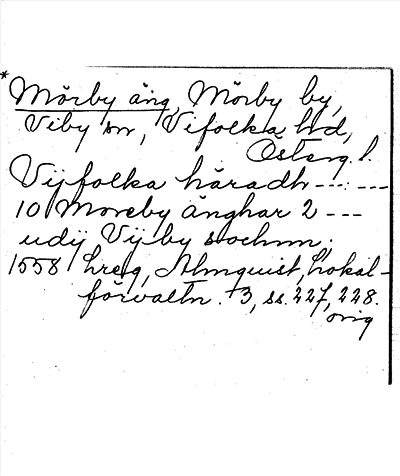 * Mörby äng, Mörby by,
Viby sn, Vifolka hd,
Östarg l.
Vijfolka häradh --- ---
10 Moreby änghar 2 ---
udij Vijby sochnn.
1558 Lreg, Almquist, Lokal-
förvaltn. 3, ss. 227, 228.
orig